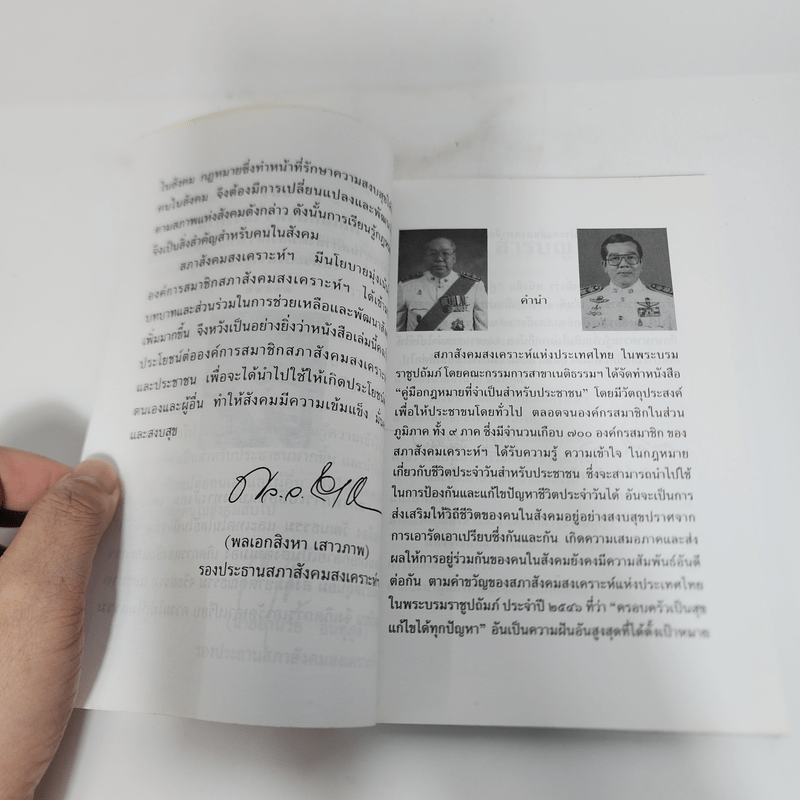 ในสังคม กฎหมายซึ่งทำหน้าที่รักษาความสงบสุขให้
คนในสังคม จึงต้องมีการเปลี่ยนแปลงและพัฒนา
ตามสภาพแห่งสังคมดังกล่าว ดังนั้นการเรียนรู้กฎหมาย
จึงเป็นสิ่งสำคัญสำหรับคนในสังคม
สภาสังคมสงเคราะห์ฯ มีนโยบายมุ่งเน้น
องค์การสมาชิกสภาสังคมสงเคราะห์ฯ ได้เข้ามา
บทบาทและส่วนร่วมในการช่วยเหลือและพัฒนาสังคม
เพิ่มมากขึ้น จึงหวังเป็นอย่างยิ่งว่าหนังสือเล่มนี้คง
ประโยชน์ต่อองค์การสมาชิกสภาสังคมสงเคราะห์
และประชาชน เพื่อจะได้นำไปใช้ให้เกิดประโยชน์
ตนเองและผู้อื่น ทำให้สังคมมีความเข้มแข็ง
และสงบสุข
(พลเอกสิงหา เสาวภาพ)
รองประธานสภาสังคมสงเคราะห์ฯ
คำนำ
สภาสังคมสงเคราะห์แห่งประเทศไทย ในพระบรม
ราชูปถัมภ์ โดยคณะกรรมการสาขาเนติธรรมฯ ได้จัดทำหนังสือ
“คู่มือกฎหมายที่จำเป็นสำหรับประชาชน” โดยมีวัตถุประสงค์
เพื่อให้ประชาชนโดยทั่วไป ตลอดจนองค์กรสมาชิกในส่วน
ภูมิภาค ทั้ง ๙ ภาค ซึ่งมีจำนวนเกือบ ๗๐๐ องค์กรสมาชิก ของ
สภาสังคมสงเคราะห์ฯ ได้รับความรู้ ความเข้าใจ ในกฎหมาย
เกี่ยวกับชีวิตประจำวันสำหรับประชาชน ซึ่งจะสามารถนำไปใช้
ในการป้องกันและแก้ไขปัญหาชีวิตประจำวันได้ อันจะเป็นการ
ส่งเสริมให้วิถีชีวิตของคนในสังคมอยู่อย่างสงบสุขปราศจาก
การเอารัดเอาเปรียบซึ่งกันและกัน เกิดความเสมอภาคและส่ง
ผลให้การอยู่ร่วมกันของคนในสังคมยังคงมีความสัมพันธ์อันดี
ต่อกัน ตามคำขวัญของสภาสังคมสงเคราะห์แห่งประเทศไทย
ในพระบรมราชูปถัมภ์ ประจำปี ๒๕๔๖ ที่ว่า “ครอบครัวเป็นสุข
แก้ไขได้ทุกปัญหา” อันเป็นความฝันอันสูงสุดที่ได้ตั้งเป้าหมาย